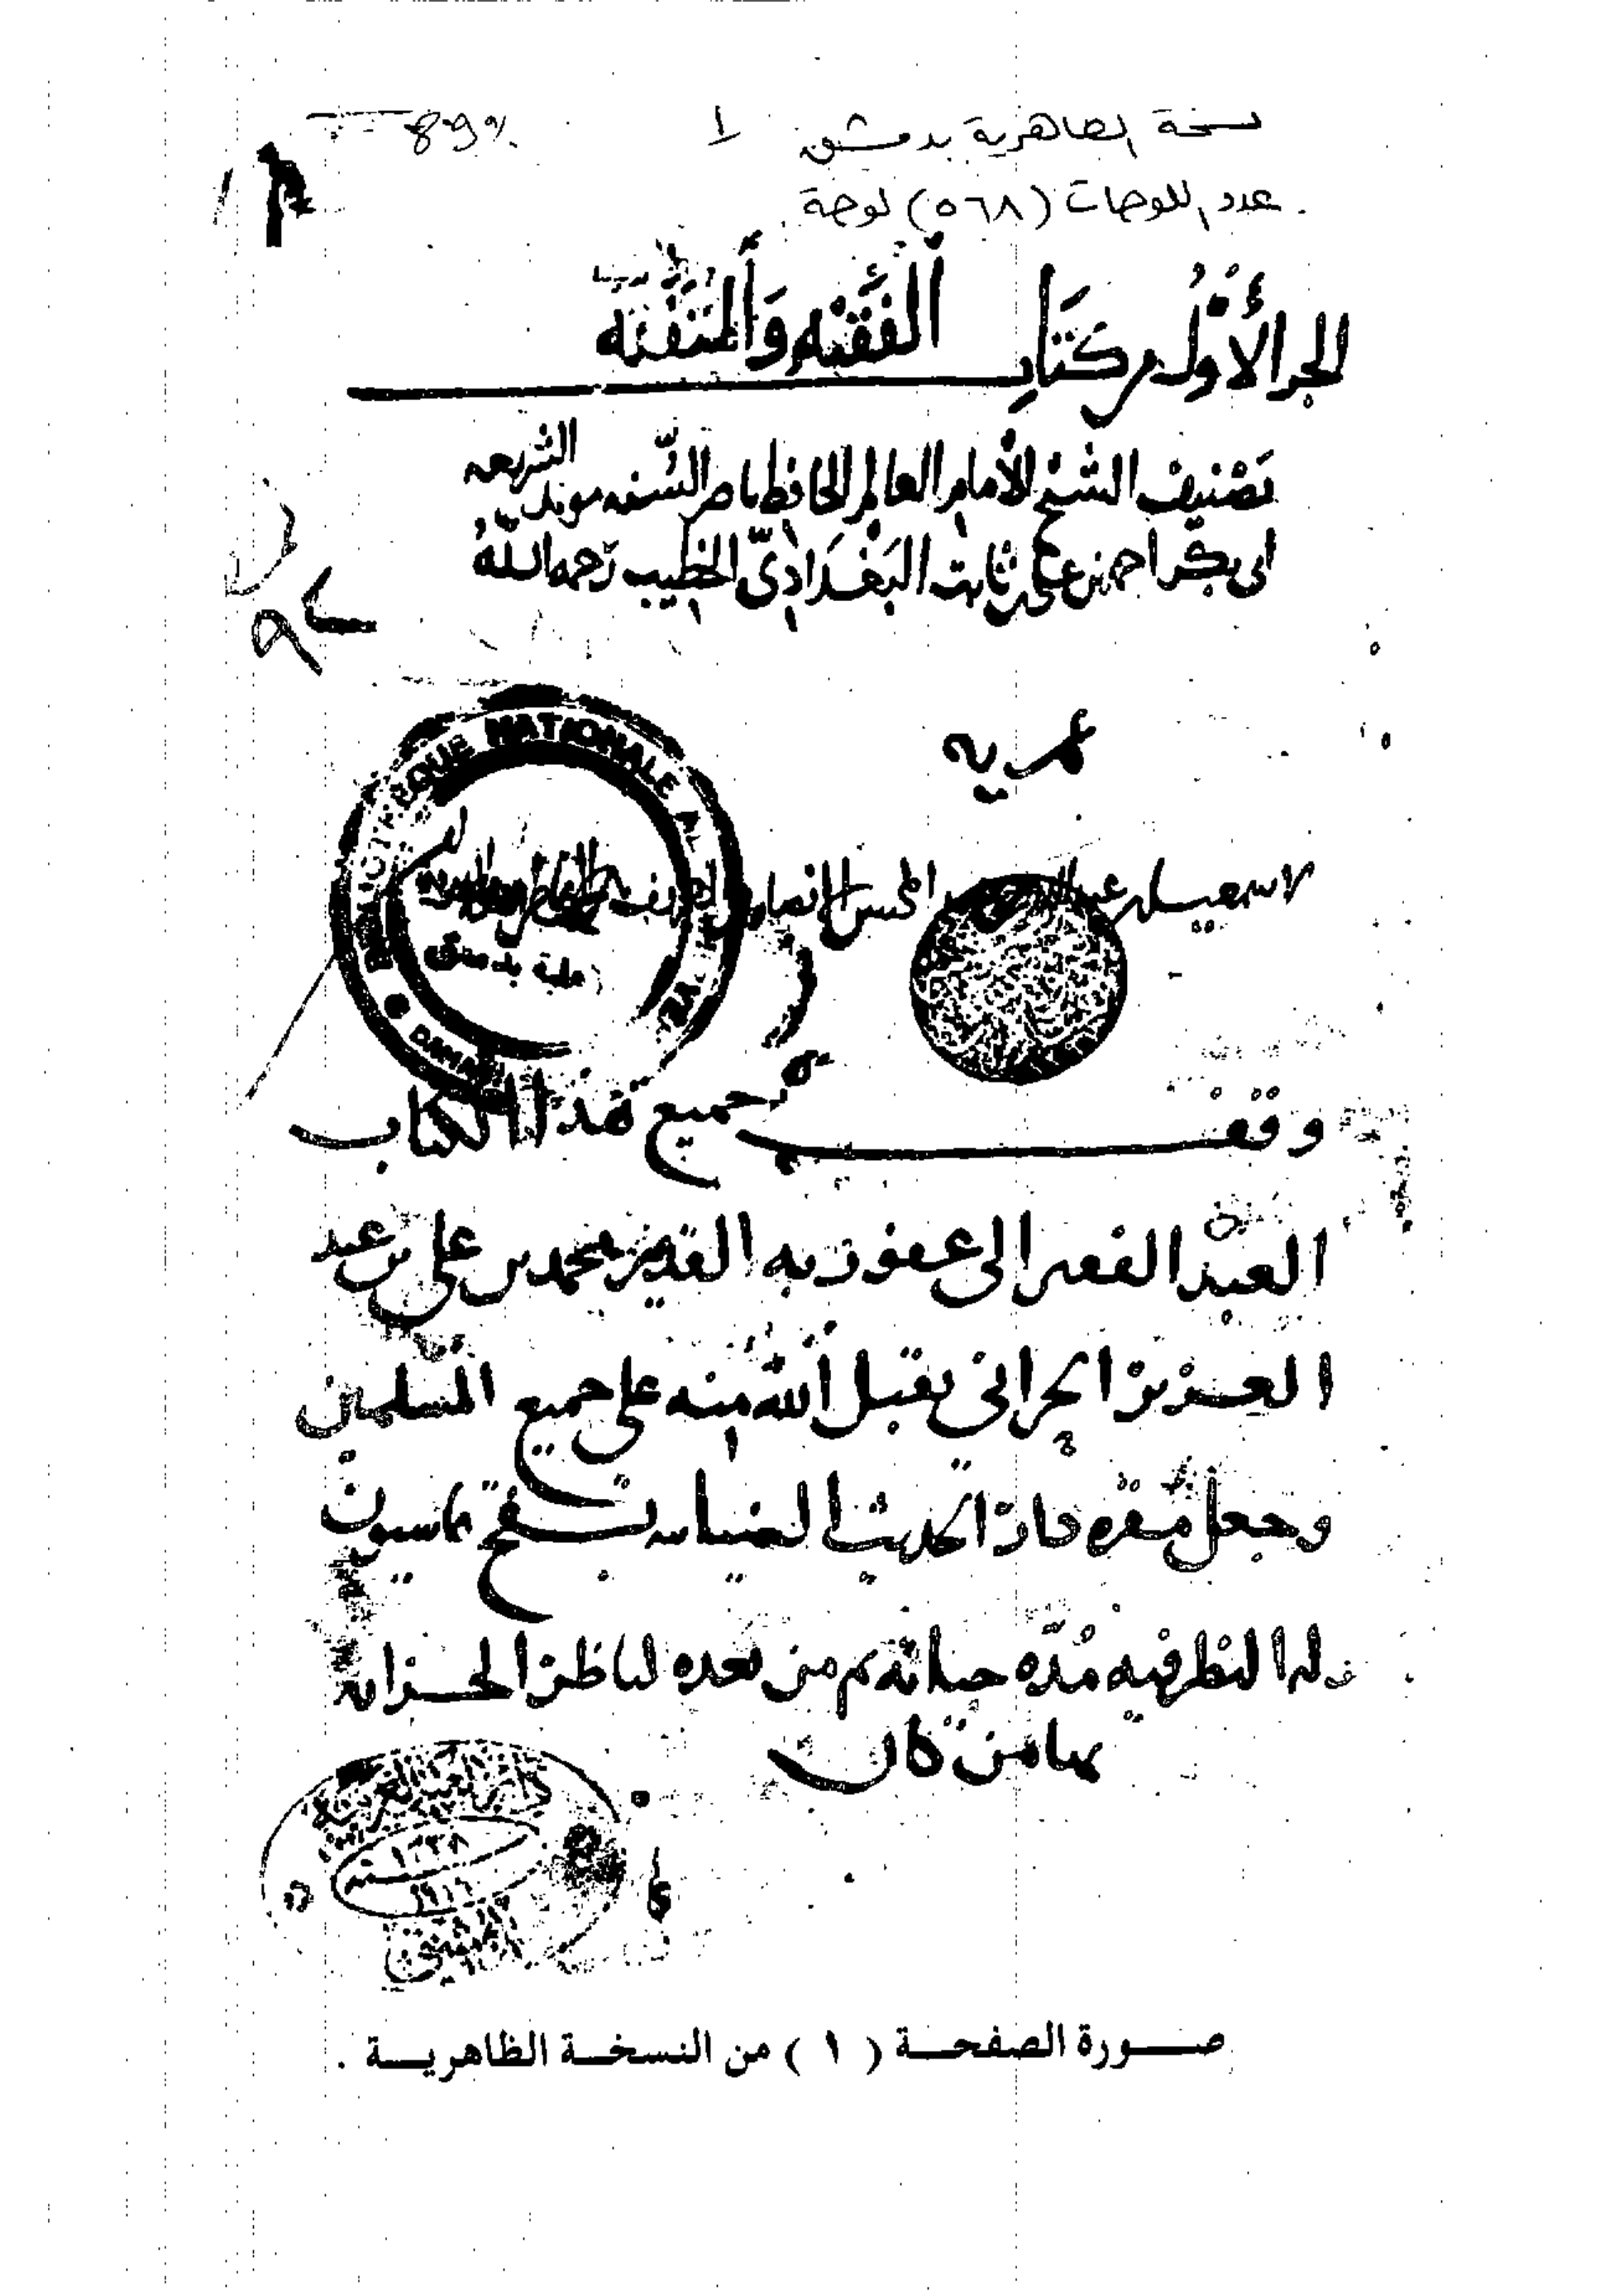 نسخة الظاهرية بدمشق ١
عدد اللوحات (٥٦٨) لوحة
الجزء الأول من كتاب الفقيه والمتفقه
تصنيف الشيخ الأمام العالم الحافظ ناصر السنه مويد الشريعه
ابى بكر احمد بن على بن ثابت البغدادي الخطيب رحمه الله
عمريه
لاسمعيل بن عبد المحسن الانصارى
BIBLIOTHEQUE NATIONALE AL
وقف جميع هذا الكتاب
العبد الفقير الى عفو ربه القدير محمد بن على بن عبد
العزيز الحرانى تقبل الله منه على جميع المسلمين
وجعل مقره دار الحديث الضيائيه بسفح قاسيون
وله النظر فيه مدة حياته ثم من بعده لناظر الخزانه
بها من كان
١٣٣٨ سنة
١٩١٩
صورة الصفحة ( ١ ) من النسخة الظاهرية .